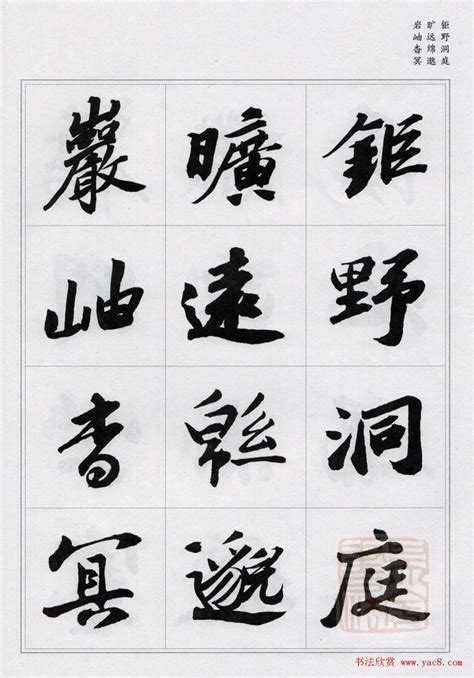 钜野洞庭
旷远绵邈
岩岫杳冥
鉅野洞庭
曠遠緜邈
巖岫杳冥
书法欣赏 www.yac8.com